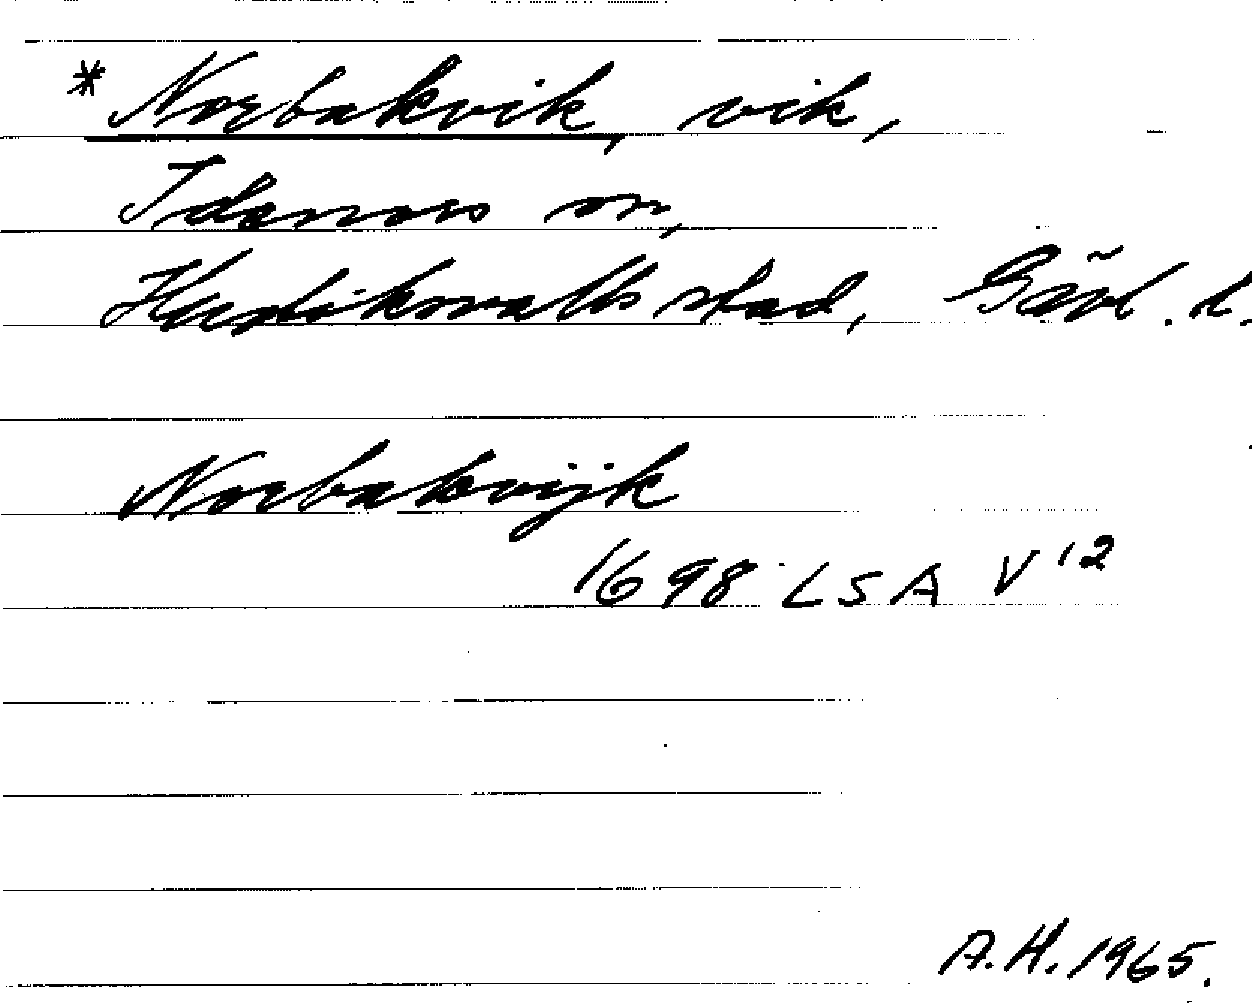 * Norbakvik, vik,
Idenors sn,
Hudiksvalls stad, Gävl. l.
Norbakvijk
1698 LSA V 12
A.H. 1965.